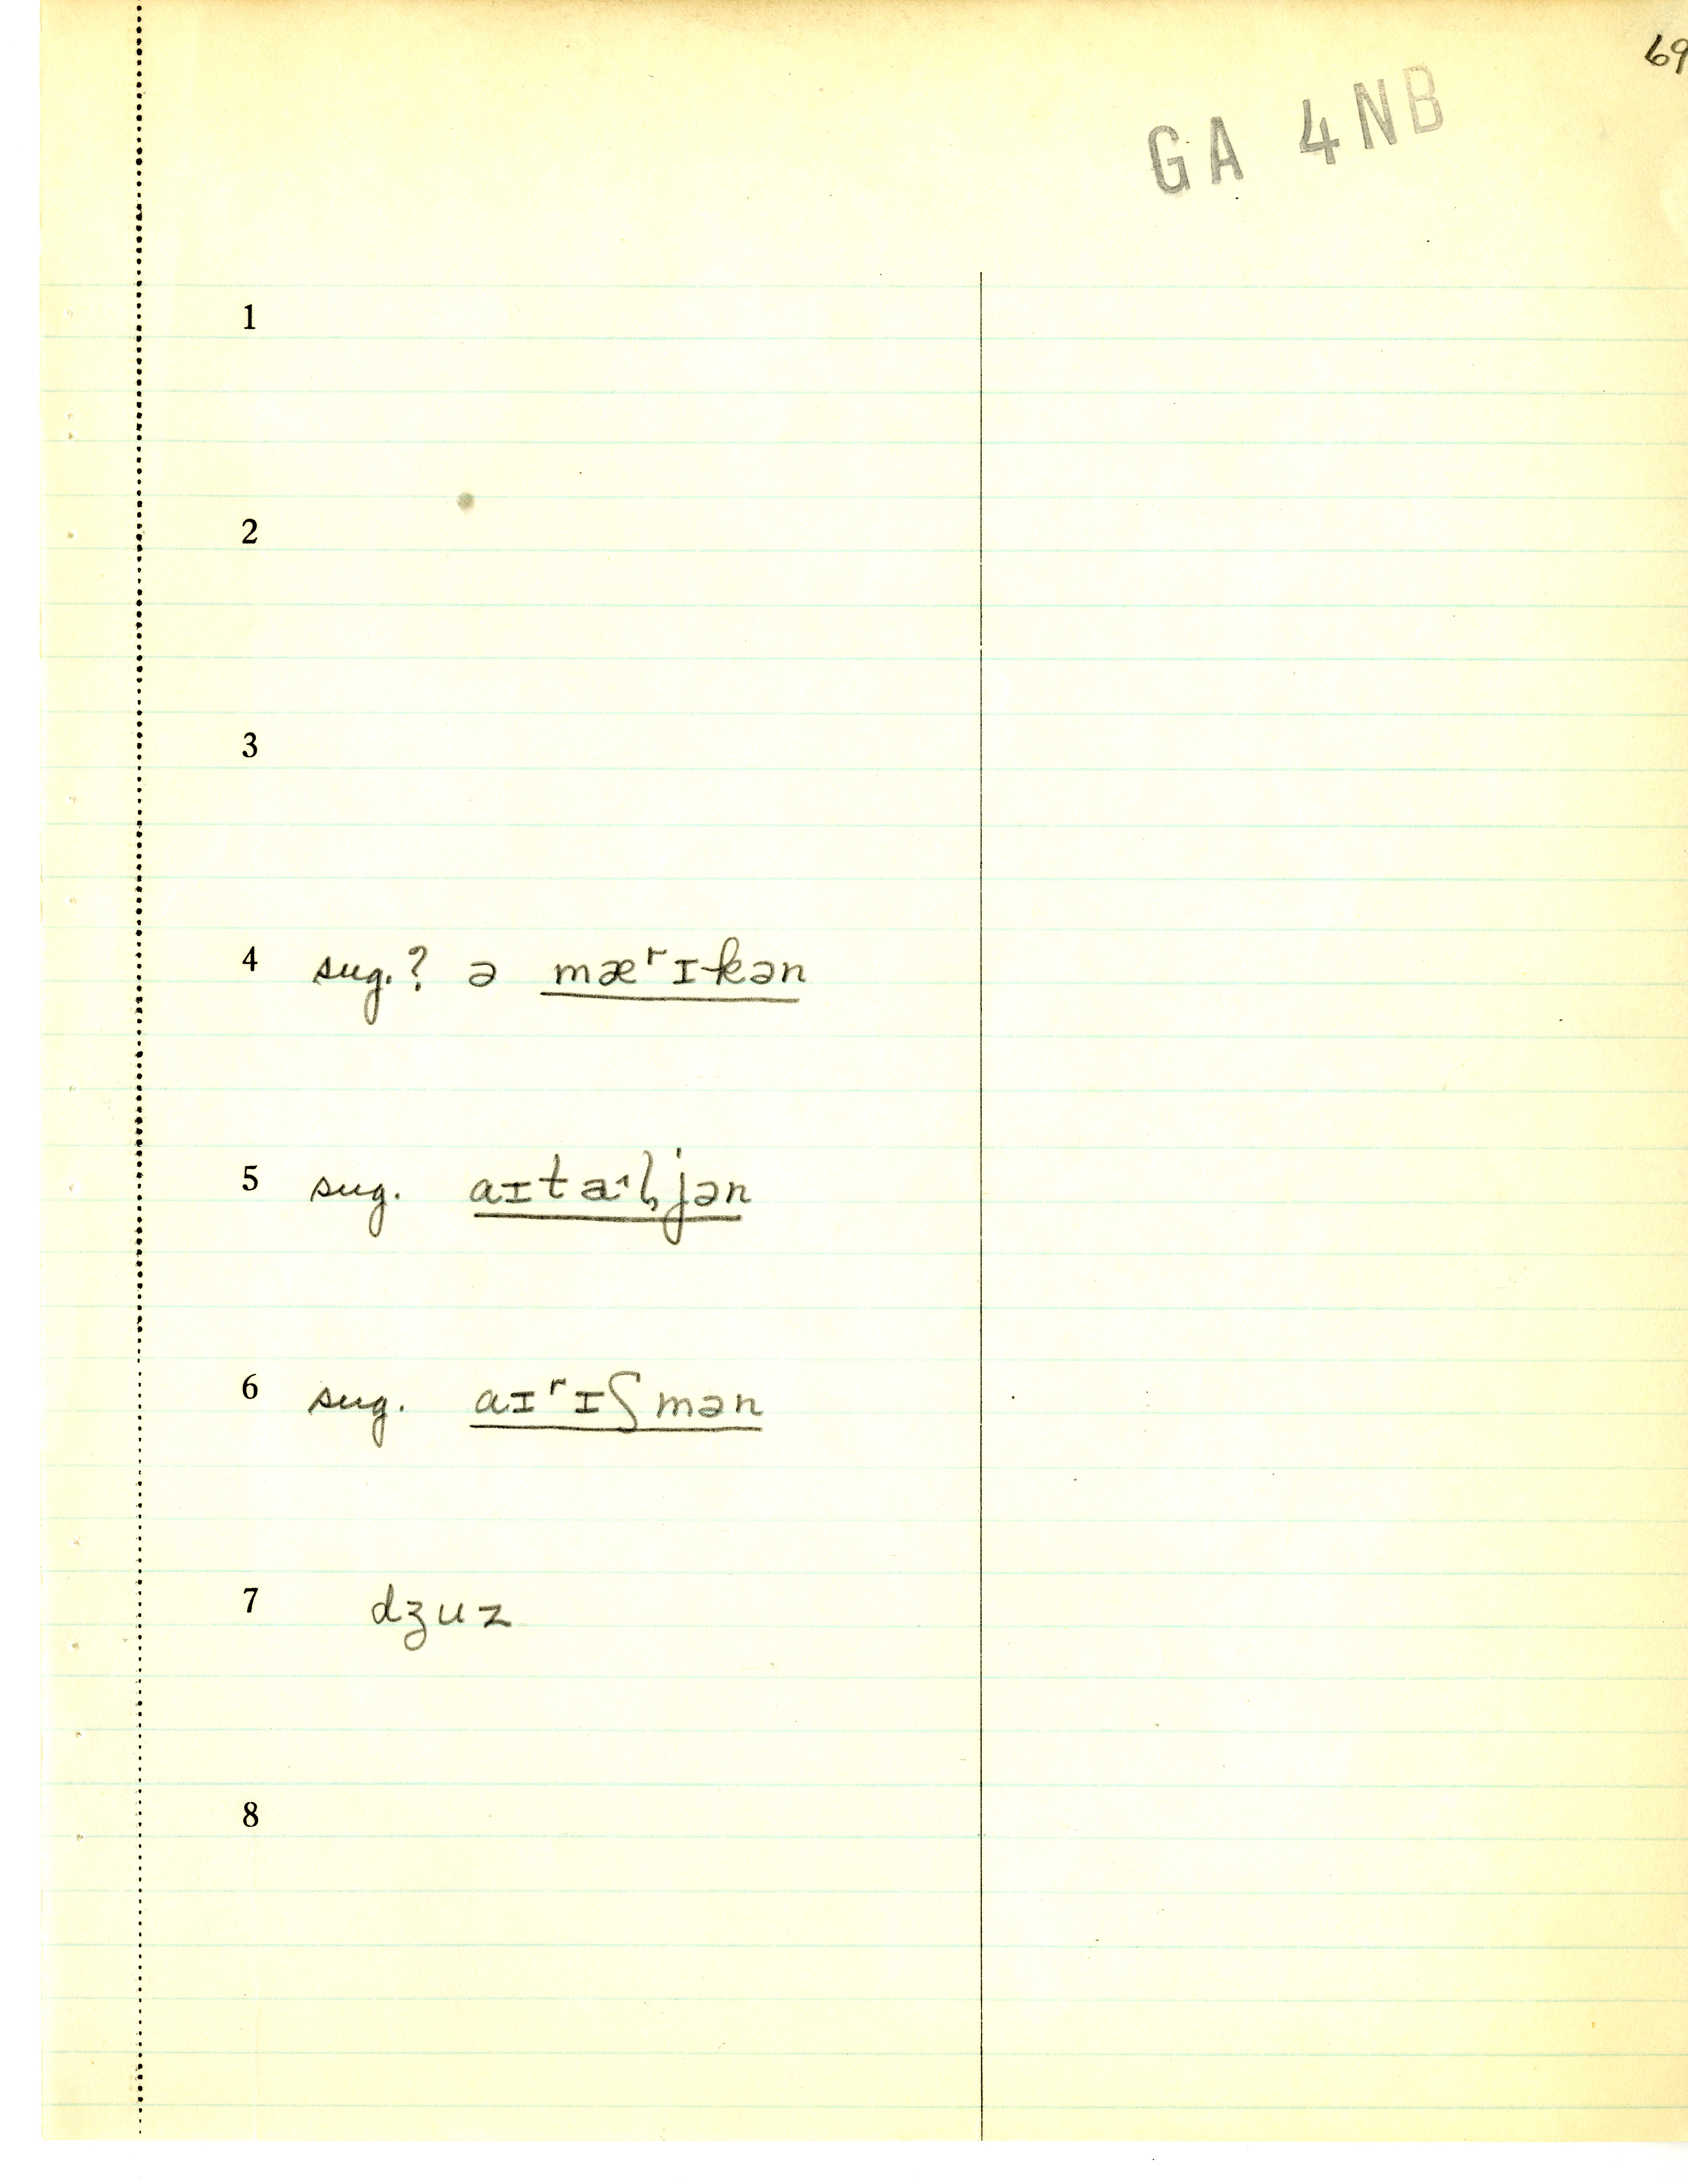 69
GA 4NB
1
2
3
4 sug.? ə mæʳɪkən
5 sug. aɪtæ˞ɫjən
6 sug. aɪʳɪʃmən
7 dʒuz
8